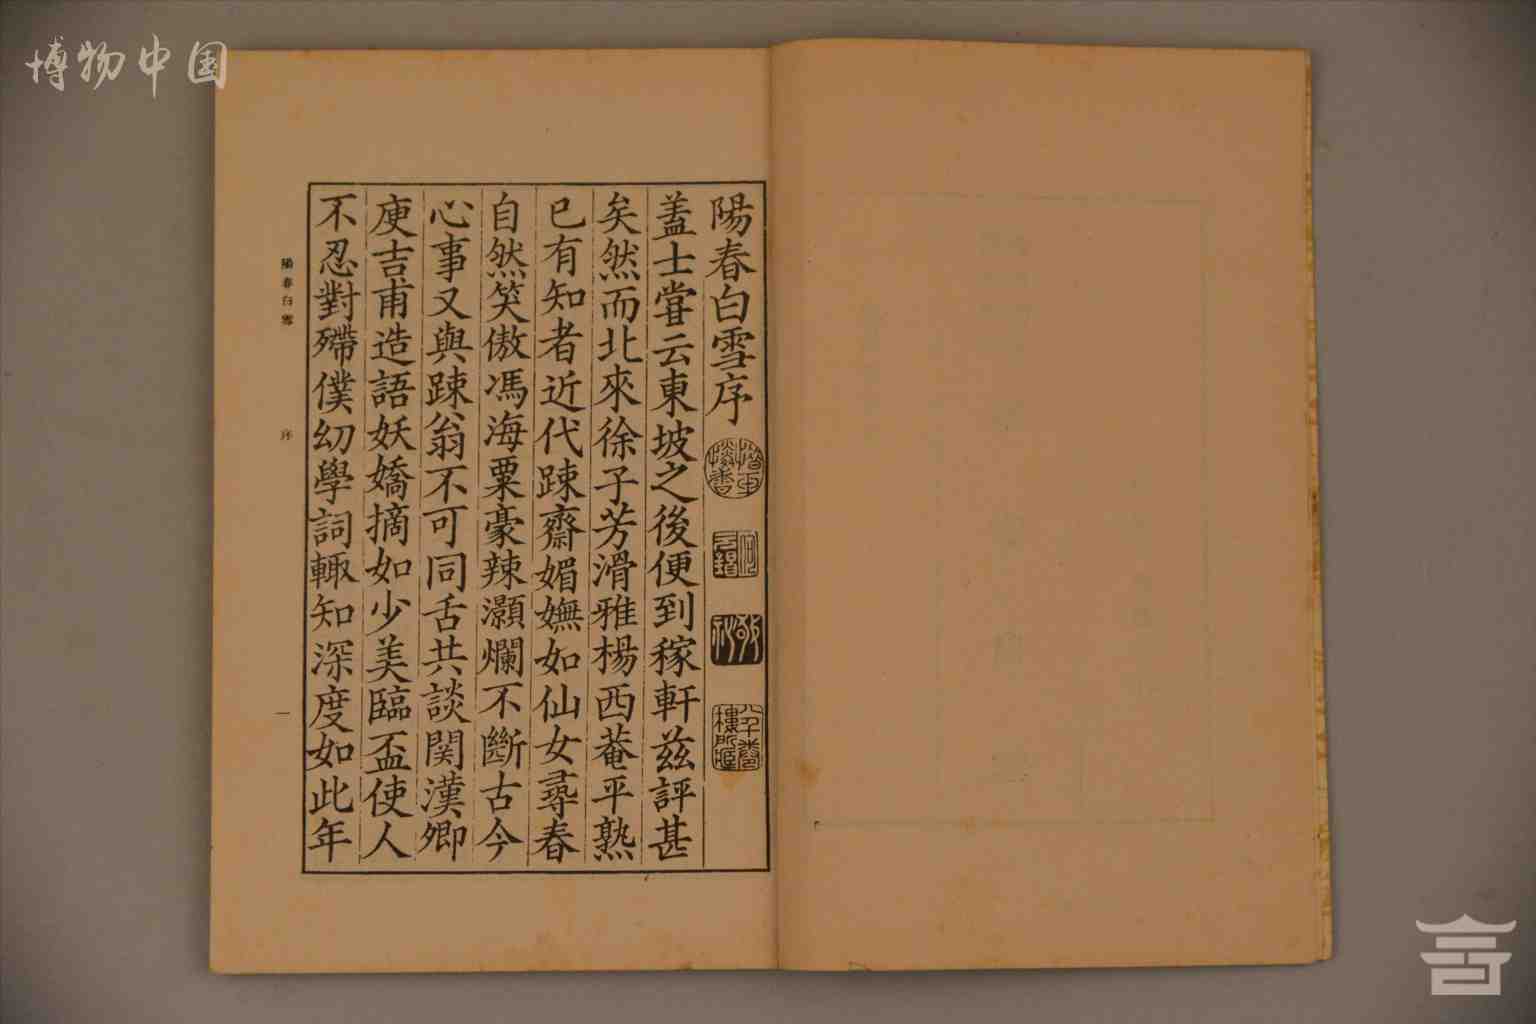 博物中国
陽春白雪序
蓋士甞云東坡之後便到稼軒茲評甚
矣然而北來徐子芳滑雅楊西菴平熟
已有知者近代踈齋媚嫵如仙女尋春
自然笑傲馮海粟豪辣灝爛不斷古今
心事又與踈翁不可同舌共談関漢卿
庾吉甫造語妖嬌摘如少美臨盃使人
不忍對殢僕幼學詞輒知深度如此年
陽春白雪
序
一